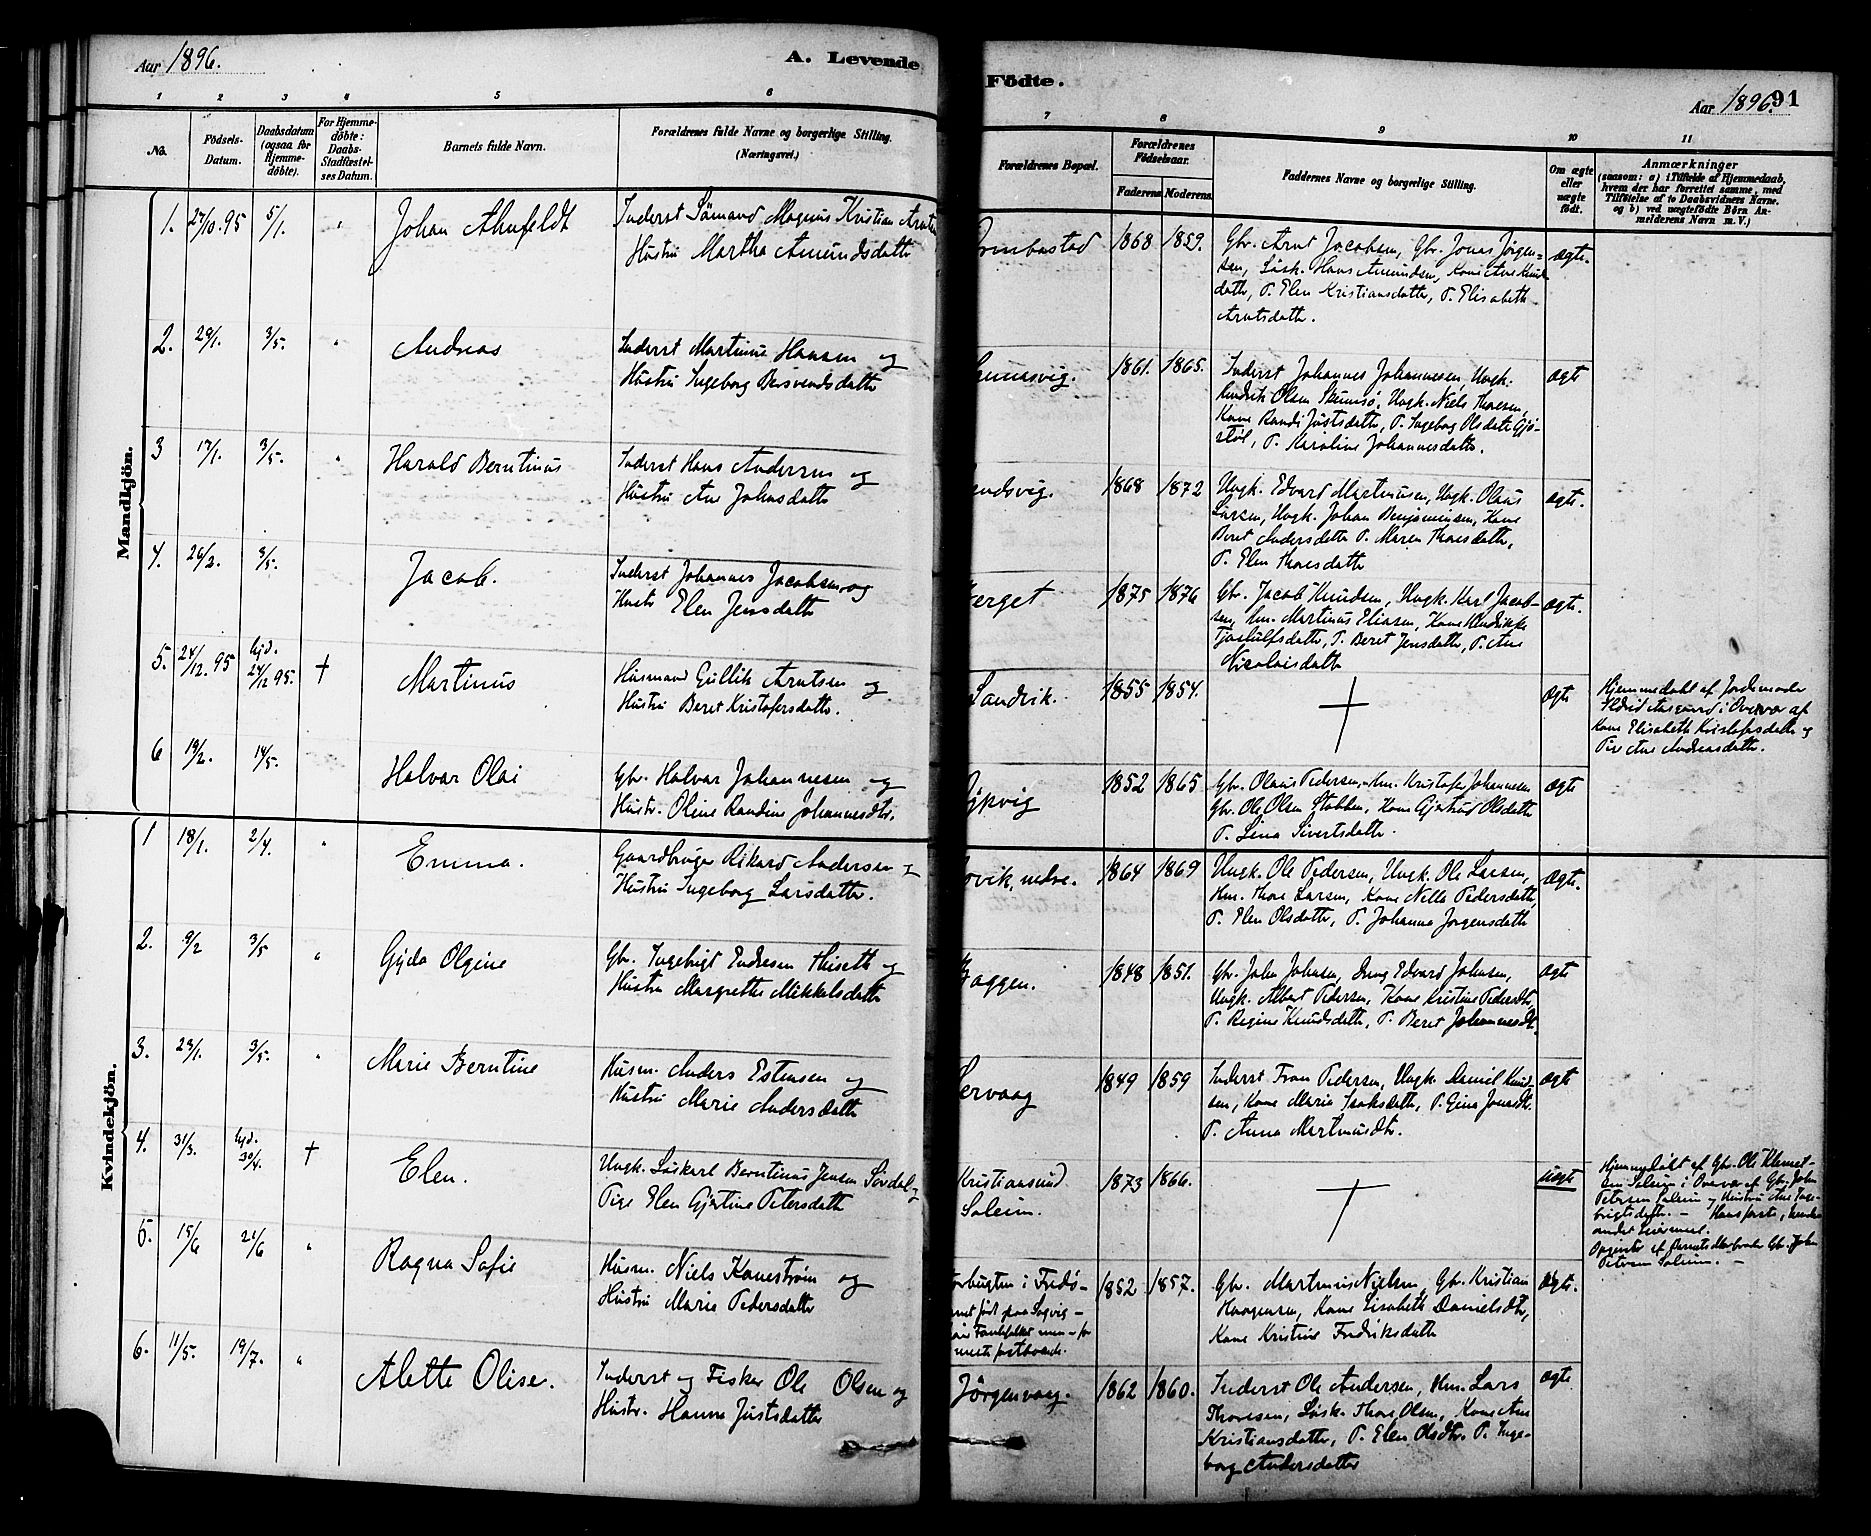 Aar 1896.
A. Levende
Födte.
Aar 1896.
91
1 2 3 4 5 6
7 8 9 10 11
No.
Födsels-
Datum.
Daabsdatum
(ogsaa for
Hjemme-
döbte).
For Hjemme-
döbte:
Daabs-
Stadfæstel-
ses Datum.
Barnets fulde Navn.
Forældrenes fulde Navne og borgerlige Stilling.
(Næringsvei.)
Forældrenes Bopæl.
Forældrenes
Födselsaar.
Faderens. Moderens.
Faddernes Navne og borgerlige Stilling.
Om ægte
eller
uægte
födt.
Anmærkninger
(saasom: a) i Tilfælde af Hjemmedaab,
hvem der har forrettet samme, med
Tilföielse af to Daabsvidners Navne.
og b) ved uægtefödte Börn An-
melderens Navn m. V.)
Mandkjön.
1. 27/10.95 5/1. " Johan Ahnfeldt
Inderst Sömand Magnus Kristian
Hustru Martha Amundsdatter
1868 1859.
Gbr. Arnt Jacobsen, Gbr. Jonas Jörgen-
sen, Løsk. Hans Amundsen, Kone Ane Knuds-
datter, P. Elen Kristiansdatter, P. Elisabeth
Arntsdatter.
ægte.
2. 29/1. 3/5. " Andreas
Inderst Martinus Hansen og
Hustru Ingeborg Bersvendsdatter
1861. 1865.
Inderst Johannes Johannesen, Ungk.
Olsen Ungk. Niels Thoresen,
Kone Randi Justsdatter, P. Ingeborg Olsdatter
P. Karoline Johannesdatter.
ægte
3 17/1. 3/5. " Harald Berntinus
Inderst Hans Andersen og
Hustru Ane Johnsdatter
1868 1872
Ungk. Edvard Martinusen, Ungk. Olaus
Larsen, Ungk. Johan Benjaminsen, Kone
Beret Andersdatter P. Maren Thoresdatter,
P. Elen Thoresdatter
ægte.
4. 26/2. 3/5. Jacob.
Inderst Johannes Jacobsen og
Hustr Elen Jensdatter
1875 1876
Gbr. Jacob Knudsen, Ungk. Karl Jacob-
sen, Hm. Martinus Eliasen, Kone Hendrikke
Tjostulfsdatter, P. Beret Jensdatter, P. Ane
Nicolaisdatter
ægte.
5. 24/12.95 hjd. 24/12 95. † Martinus
Husmand Gullik Arntsen og
Hustru Beret Kristofersdatter.
Sandvik.
1855 1854.
ægte
Hjemmedøbt af Jordemoder
i Overvær af
Kone Elisabeth Kristofersdatter og
Pige Ane Andreasdatter.
6 19/2. 14/5. Halvar Olai
Gbr. Halvar Johannesen og
Hustr. Oline Randine Johannesdtr.
1852 1865
Gbr. Olaus Pedersen, Hm. Kristofer Johannesen
Gbr. Ole Olsen Stabben, Kone Gjertrud Olsdatter
P. Lina Sivertsdatter.
ægte
Kvindekjön.
1 18/1. 2/4. " Emma.
Gaardbruger Rikard Andersen og
Hustru Ingeborg Larsdatter.
1864 1869
Ungk. Ole Pedersen, Ungk. Ole Larsen,
Hm. Thore Larsen, Kone Nella Pedersdatter,
P. Elen Olsdatter, P. Johanna Jörgensdatter
ægte.
2. 9/2 3/5 " Gyda Olgine
Gbr. Ingebrigt Endresen Huseth og
Hustru Margrethe Mikkelsdatter
1848 1851.
Gbr. John Johnsen, Dreng Edvard Johnsen,
Ungk. Albert Pedersen, Kone Kristine Pedersdtr,
P. Regine Knudsdatter, P. Beret Johannesdtr.
ægte
3. 23/1. 3/5. " Marie Berntine
Husm. Anders Estensen og
Hustru Marie Andersdatter
1849 1859
Inderst Frans Pedersen, Ungk. Daniel Knud-
sen, Kone Maria Isaksdatter, P. Gina Jonasdtr.
P. Anna Martinusdtr.
ægte
4. 31/3. hjd. 30/4. † Elen.
Ungk. Löskarl Berntinus Jensen Sördal og
Pige Elen Gjertine Petersdatter
Kristiansund
Soleim.
1873 1866.
uægte
Hjemmedøbt af Gbr. Ole Klemet-
sen Soleim i Overvær af Gbr. John
Petersen Soleim og Hustru Ane Inge-
brigtsdatter. – Hans første, hendes
andet Leiermaal.
Opgivet af Barnets Morbroder Gbr. John
Petersen Soleim. –
5. 15/6 21/6 " Ragna Sofie
Husm. Niels Kanestrøm og
Hustru Marie Pedersdatter
1852 1857.
Gbr. Martinus Nielsen, Gbr. Kristian
Haagensen, Kone Lisabeth Danielsdtr,
Kone Kristine Fredriksdatter
ægte.
6. 11/5. 19/7. " Alette Olise.
Inderst og Fisker Ole Olsen og
Hustr. Hanna Justsdatter
Jörgenvaag.
1862 1860.
Inderst Ole Andersen, Hm. Lars
Thoresen, Løsk. Thore Olsen, Kone Ane
Kristiansdatter, P. Elen Olsdtr. P. Inge-
borg Andersdatter
ægte